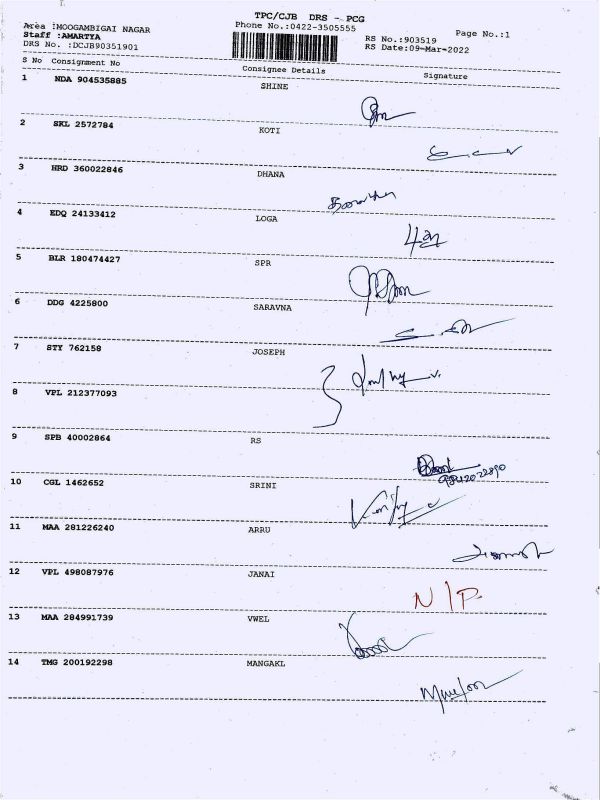 TPC/CJB DRS - PCG
Area :MOOGAMBIGAI NAGAR Phone No.:0422-3505555 Page No.:1
Staff :AMARTYA RS No.:903519
DRS No. :DCJB90351901 RS Date:09-Mar-2022
S No Consignment No Consignee Details Signature
1 NDA 904535885 SHINE
2 SKL 2572784 KOTI
3 HRD 360022846 DHANA
4 EDQ 24133412 LOGA
5 BLR 180474427 SPR
6 DDG 4225800 SARAVNA
7 STY 762158 JOSEPH
8 VPL 212377093
9 SPB 40002864 RS
9842022890
10 CGL 1462652 SRINI
11 MAA 281226240 ARRU
12 VPL 498087976 JANAI N/P.
13 MAA 284991739 VWEL
14 TMG 200192298 MANGAKL